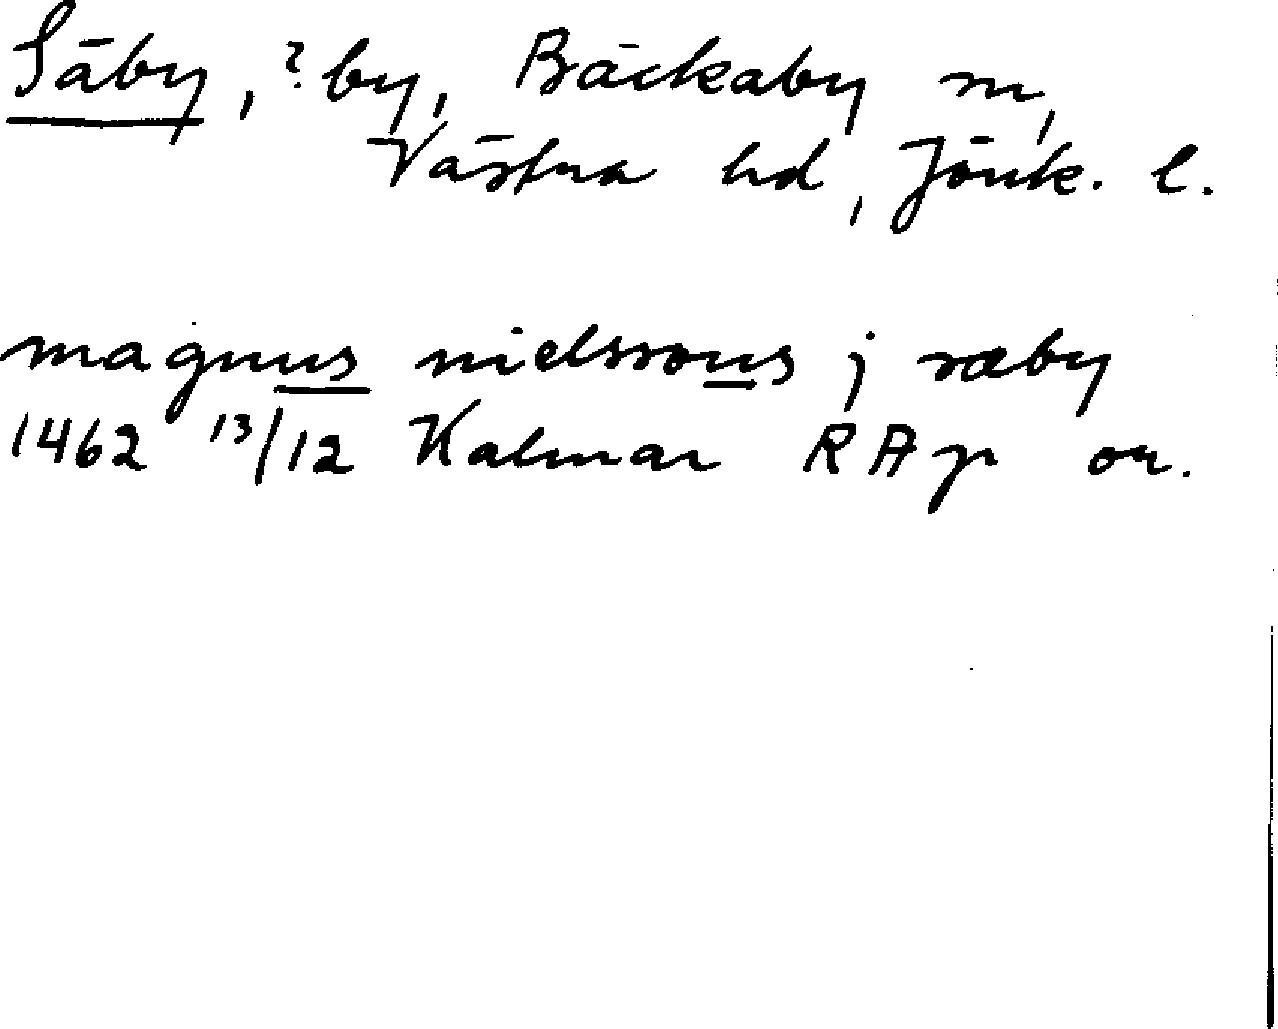 Säby, ? by, Bäckaby sn,
Västra hd, Jönk. l.
magnus nielssons j sæby
1462 13/12 Kalmar RAp or.